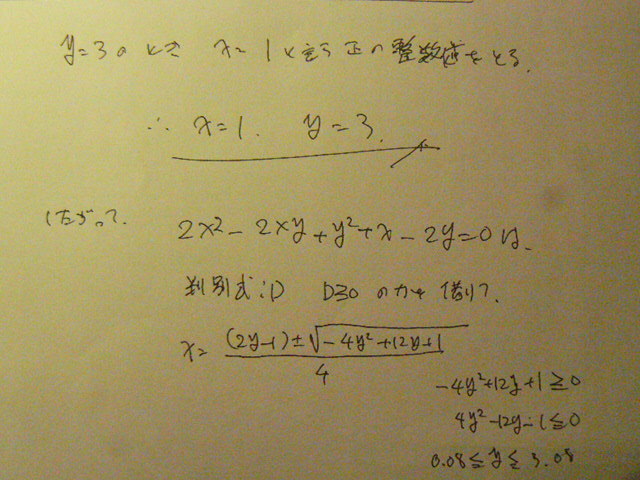 y=3のとき x=1と言う正の整数値をとる.
∴ x=1. y=3.
したがって. 2x²-2xy+y²+x-2y=0は.
判別式:D D≧0 の力を借りて.
x= (2y-1)±√-4y²+12y+1 / 4
-4y²+12y+1≧0
4y²-12y-1≦0
0.08≦y≦3.08